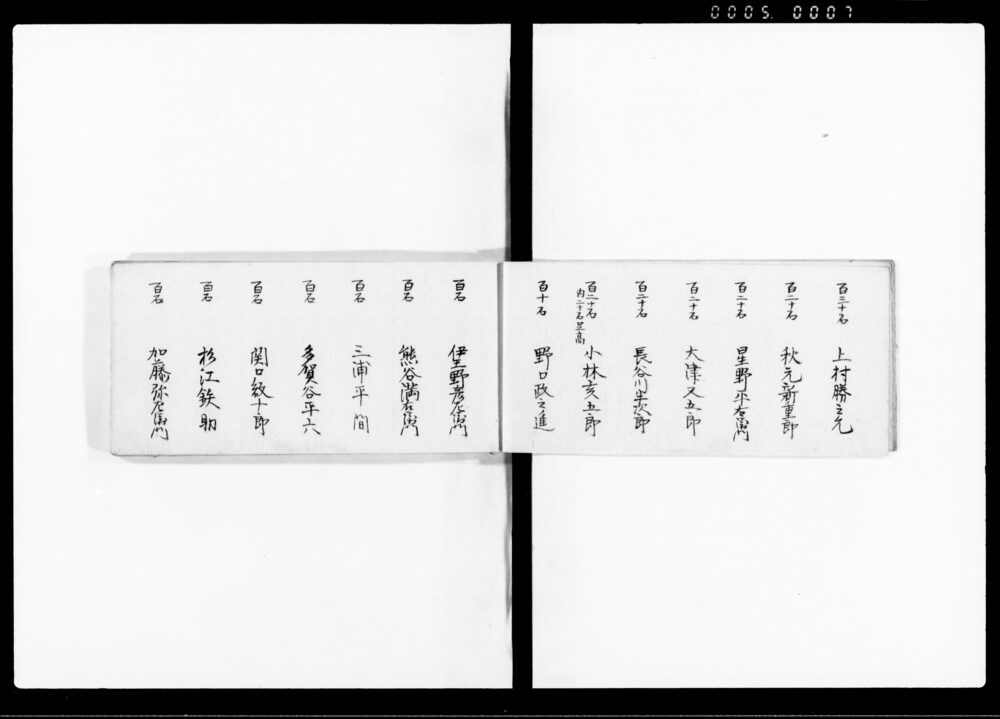 0005.0007
百三十石 上村勝之元
百二十石 秋元新重郎
百二十石 星野平右衛門
百二十石 大津又五郎
百二十石 長谷川半次郎
百二十石 内二十石足高 小林亥五郎
百十石 野口政之進
百石 伊王野彦左衛門
百石 熊谷満右衛門
百石 三浦平間
百石 多賀谷平六
百石 関口紋十郎
百石 杉江鉄助
百石 加藤弥左衛門